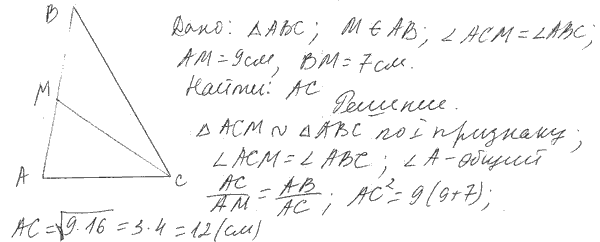 B
M
A
C
Дано: △ABC; M ∈ AB; ∠ACM = ∠ABC;
AM = 9 см, BM = 7 см.
Найти: AC
Решение.
△ACM ~ △ABC по I признаку;
∠ACM = ∠ABC; ∠A – общий
AC/AM = AB/AC; AC² = 9(9+7);
AC = √9·16 = 3·4 = 12 (см)